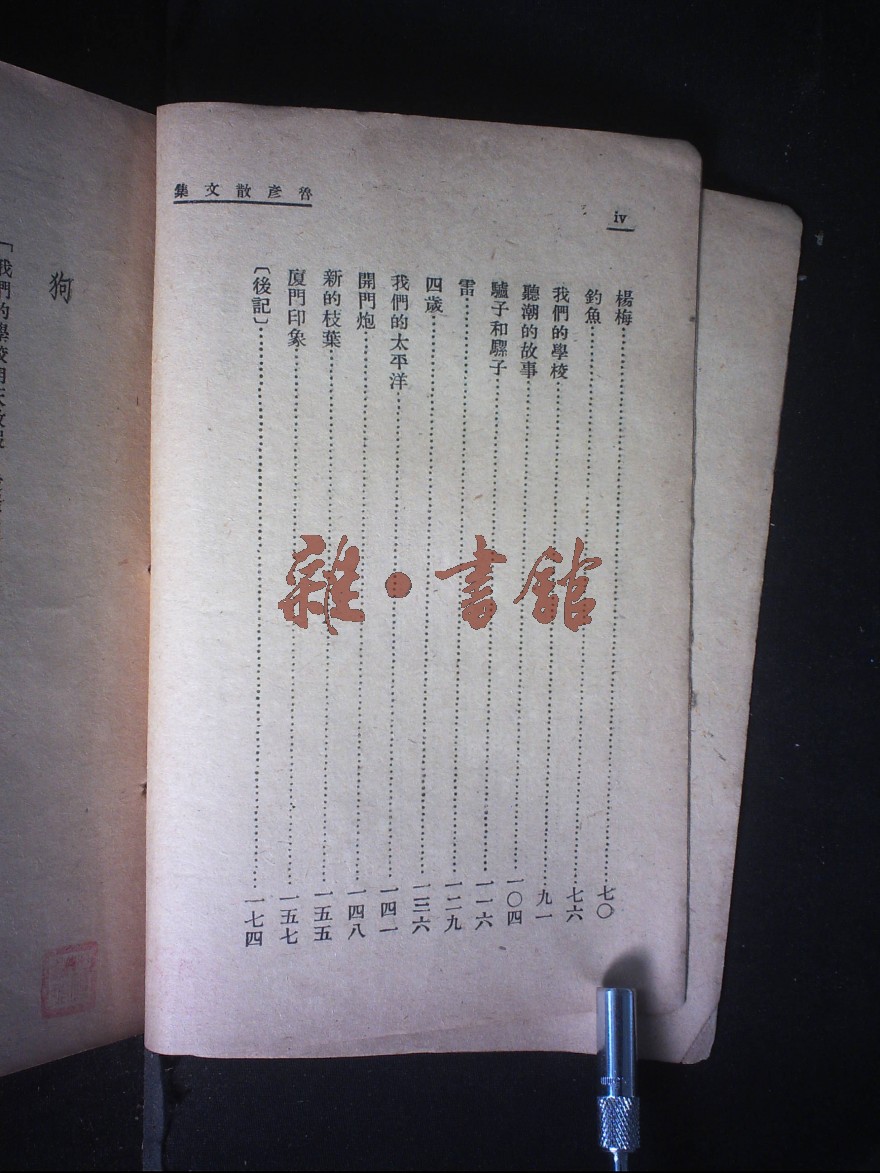 魯彥散文集
iv
楊梅……七〇
釣魚……七六
我們的學校……九一
聽潮的故事……一〇四
驢子和騾子……一一六
雷……一二九
四歲……一三六
我們的太平洋……一四一
開門炮……一四八
新的枝葉……一五五
廈門印象……一五七
〔後記〕……一七四
狗
「我們的學校
雜·書館